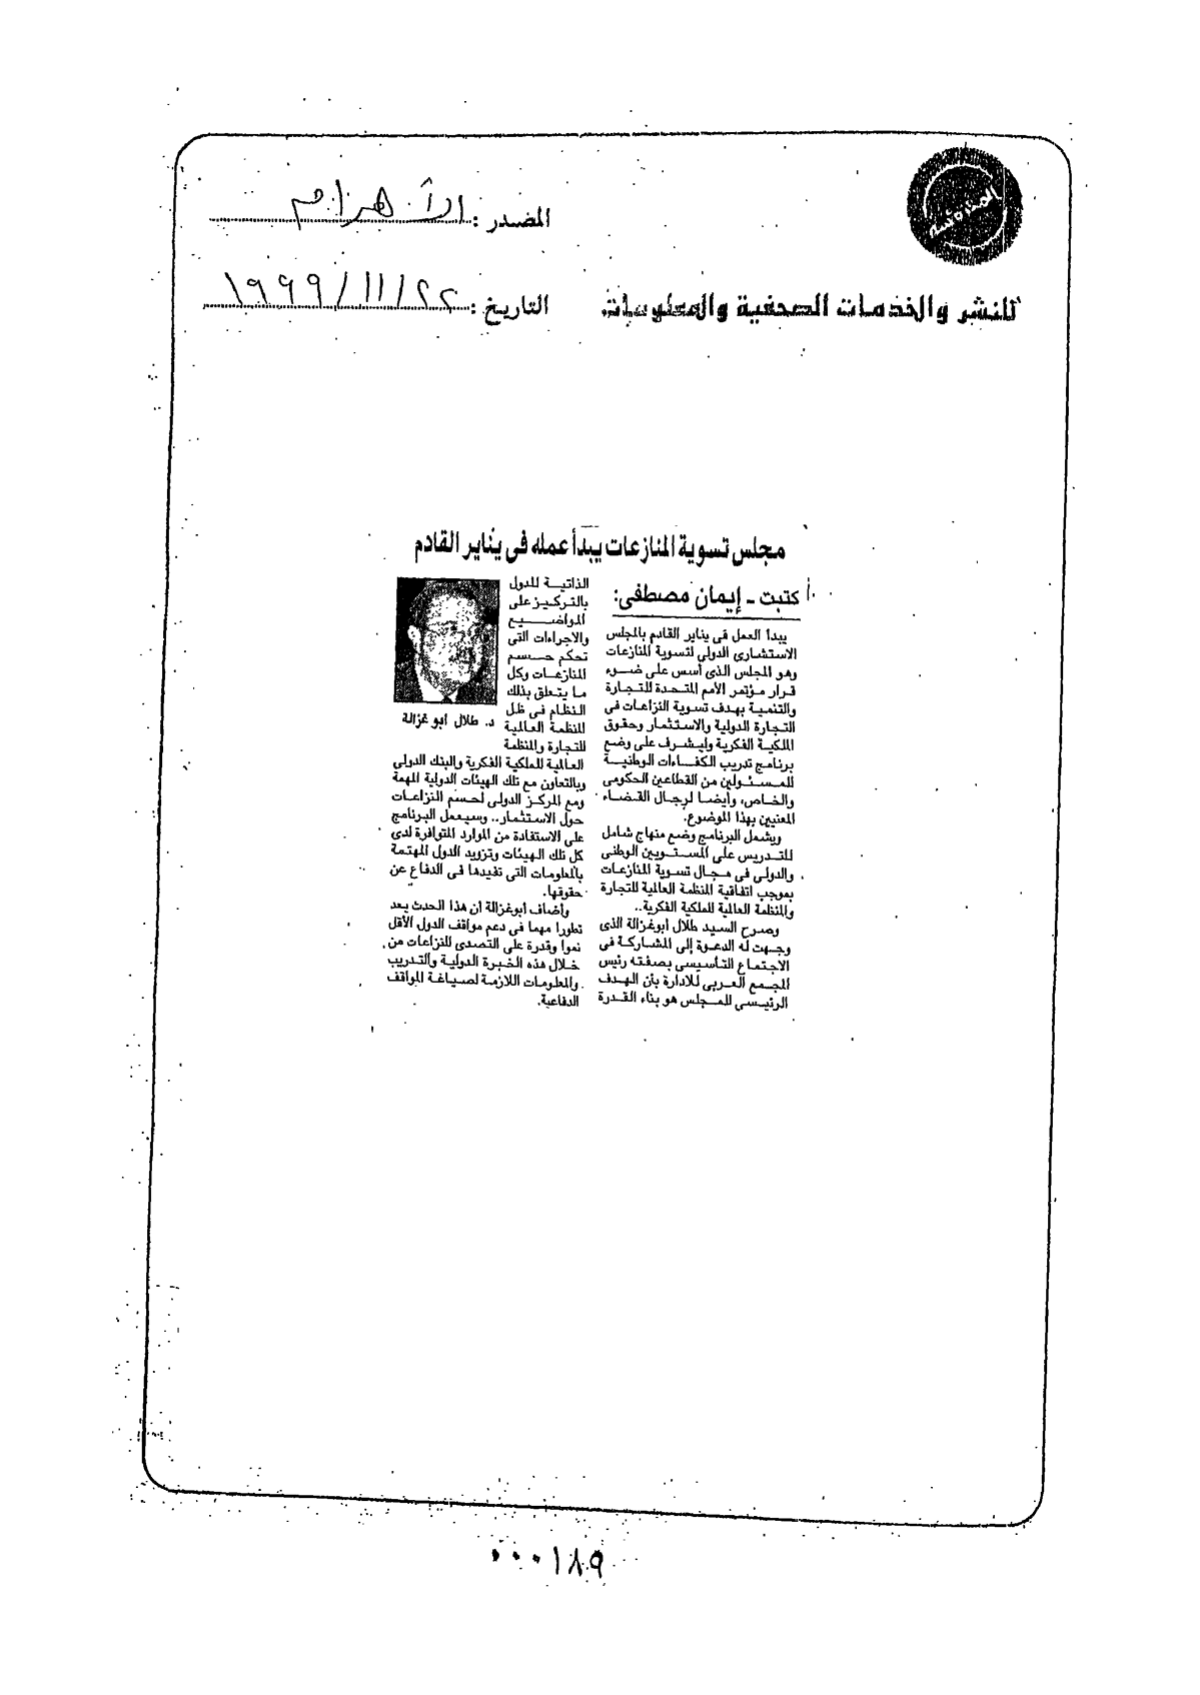 المصدر : الأهرام
للنشر والخدمات الصحفية والمعلومات
التاريخ : ٢٢/١١/١٩٩٩
مجلس تسوية المنازعات يبدأ عمله فى يناير القادم
كتبت ـ إيمان مصطفى:
يبدأ العمل فى يناير القادم بالمجلس
الاستشارى الدولى لتسوية المنازعات
وهو المجلس الذى أسس على ضوء
قرار مؤتمر الأمم المتحدة للتجارة
والتنمية بهدف تسوية النزاعات فى
التجارة الدولية والاستثمار وحقوق
الملكية الفكرية وليشرف على وضع
برنامج تدريب الكفاءات الوطنية
للمسئولين من القطاعين الحكومى
والخاص، وأيضا لرجال القضاء
المعنيين بهذا الموضوع.
ويشمل البرنامج وضع منهاج شامل
للتدريس على المستويين الوطنى
والدولى فى مجال تسوية المنازعات
بموجب اتفاقية المنظمة العالمية للتجارة
والمنظمة العالمية للملكية الفكرية..
وصرح السيد طلال أبوغزالة الذى
وجهت له الدعوة إلى المشاركة فى
الاجتماع التأسيسى بصفته رئيس
المجمع العربى للادارة بأن الهدف
الرئيسى للمجلس هو بناء القدرة
الذاتية للدول
بالتركيز على
المواضيع
والاجراءات التى
تحكم حسم
المنازعات وكل
ما يتعلق بذلك
النظام فى ظل
المنظمة العالمية
للتجارة والمنظمة
د. طلال ابو غزالة
العالمية للملكية الفكرية والبنك الدولى
وبالتعاون مع تلك الهيئات الدولية المهمة
ومع المركز الدولى لحسم النزاعات
حول الاستثمار.. وسيعمل البرنامج
على الاستفادة من الموارد المتوافرة لدى
كل تلك الهيئات وتزويد الدول المهتمة
بالمعلومات التى تفيدها فى الدفاع عن
حقوقها.
وأضاف أبوغزالة أن هذا الحدث يعد
تطورا مهما فى دعم مواقف الدول الأقل
نموا وقدرة على التصدى للنزاعات من
خلال هذه الخبرة الدولية والتدريب
والمعلومات اللازمة لصياغة المواقف
الدفاعية.
٠٠٠١٨٩